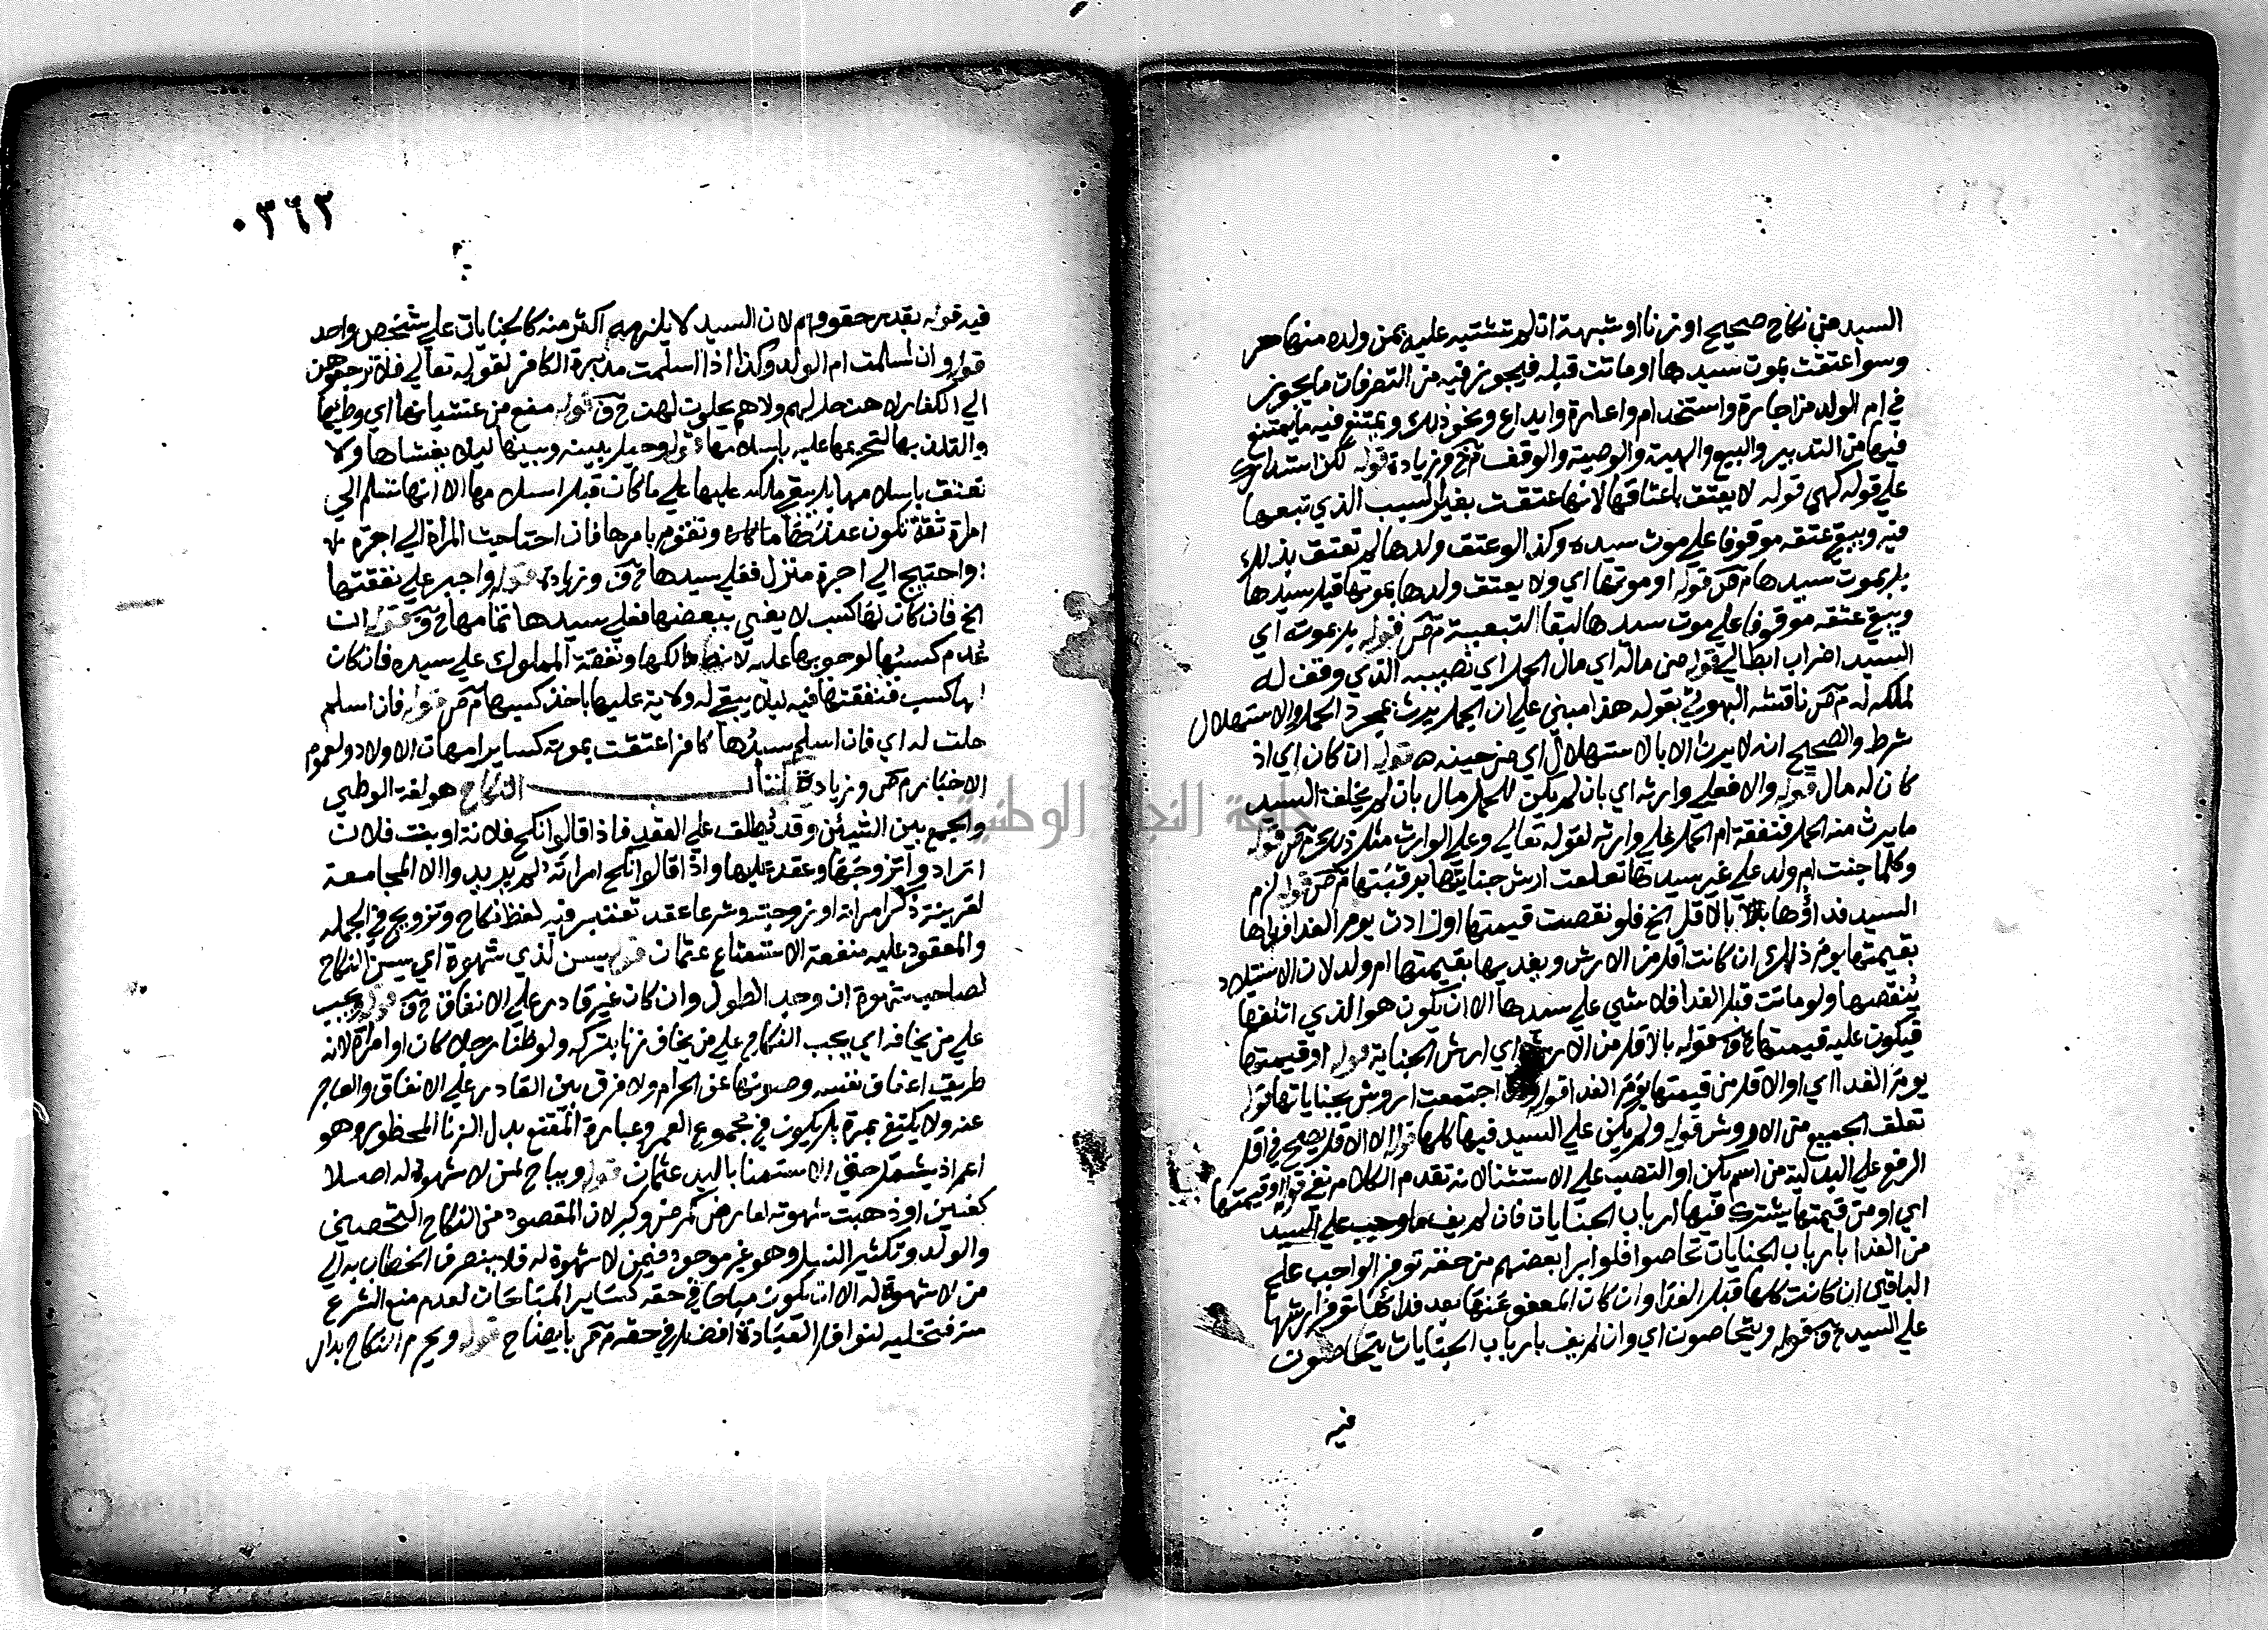 السيد من نكاح صحيح او زنا او شبهة ان لم تشتبه عليه بمن ولده منها حر
وسوا عتقت بموت سيدها او ماتت قبله فيجوز فيه من التصرفات ما يجوز
في ام الولد من اجارة واستخدام واعارة وايداع ونحو ذلك ويمتنع فيه ما يمتنع
فيها من التدبير والبيع والهبة والوصية والوقف وزيادة قوله لكن استدارك
علي قوله كهي قوله لا يعتق باعتاقها لانها عتقت بغير السبب الذي تبعها
فيه ويبقي عتقه موقوفا علي موت سيده وكذا لو عتق ولدها لم تعتق بذلك
بل بموت سيدها م ص قوله او موتها اي ولا يعتق ولدها بموتها قبل سيدها
ويبقي عتقه موقوفا علي موت سيدها لبقا التبعية م ص قوله بل بموته اي
السيد اضراب ابطالي قوله من ماله اي مال الحمل اي نصيبه الذي وقف له
لملكه له م ص ناقشه البهوتي بقوله هذا مبني علي ان الحمل يرث بمجرد الحمل والاستهلال
شرط والصحيح انه لا يرث الا بالاستهلال اي من حينه ه قوله ان كان اي اذ
كان له مال قوله والا فعلي وارثه اي بان لم يكن للحمل مال بان لم يخلف السيد
ما يرث منه الحمل فنفقة ام الحمل علي وارثه لقوله تعالي وعلي الوارث مثل ذلك م ص قوله
وكلما جنت ام ولد علي غير سيدها تعلقت ارش جنايتها برقبتها م ص قوله لزم
السيد فداؤها بالاقل الخ فلو نقصت قيمتها او زادت يوم الفدا فداها
بقيمتها يوم ذلك ان كانت اقل من الارش ويفديها بقيمتها ام ولد لان الاستيلاد
ينقصها ولو ماتت قبل الفدا فلا شي علي سيدها الا ان يكون هو الذي اتلفها
فيكون عليه قيمتها قوله بالاقل من الارش اي ارش الجناية قوله او قيمتها
يوم الفدا اي او الاقل من قيمتها يوم الفدا قوله وان اجتمعت اروش بجنايات قوله
تعلق الجميع من الاروش قوله ولم يكن علي السيد فيها كلها قوله الا الاقل يصح في اقل
الرفع علي البدلية من اسم يكن او النصب علي الاستثنا لانه تقدم الكلام نفي قوله او قيمتها
اي او من قيمتها يشترك فيها ارباب الجنايات فان لم يف ما وجب علي السيد
من الفدا بارباب الجنايات تحاصوا فلو ابرا بعضهم من حقه توفر الواجب علي
الباقي ان كانت كلها قبل الفدا وان كان المعفو عنها بعد فدائها توفر ارشها
علي السيد قوله ويتحاصون اي وان لم يف بارباب الجنايات يتحاصون
فيه
٠٣٦٣
فيه قوله بقدر حقوقهم لان السيد لا يلزمه اكثر منه كالجنايات علي شخص واحد
قوله وان اسلمت ام الولد وكذا اذا اسلمت مدبرة الكافر لقوله تعالي فلا ترجعوهن
الي الكفار لا هن حل لهم ولا هم يحلون لهن قوله منع من غشيانها اي وطيها
والتلذذ بها لتحريمها عليه باسلامها قوله وحيل بينه وبينها ليلا يغشاها ولا
تعتق باسلامها بل يبقي ملكه عليها علي ما كان قبل اسلامها الا انها تسلم الي
امراة ثقة تكون عندها وتقوم بامرها فان احتاجت المراة الي اجرة
او احتيج الي اجرة منزل فعلي سيدها وزيادة قوله واجبر علي نفقتها
الخ فان كان لها كسب لا يفي ببعضها فعلي سيدها تمامها قوله ان
عدم كسبها لوجوبها عليه لانه مالكها ونفقة المملوك علي سيده فان كان
لها كسب فنفقتها فيه ليلا يبقي له ولاية عليها باخذ كسبها م ص قوله فان اسلم
حلت له اي فان اسلم سيدها كافرا عتقت بموته كساير امهات الاولاد ولعموم
الاخبار م ص وزيادة كتاب النكاح هو لغة الوطي
والجمع بين الشيئين وقد يطلق علي العقد فاذا قالوا نكح فلانة او بنت فلان
ارادوا تزوجها وعقد عليها واذا قالوا نكح امراته لم يريدوا الا المجامعة
لقرينة ذكر امراته او زوجته وشرعا عقد تعتبر فيه لفظ نكاح وتزويج في الجملة
والمعقود عليه منفعة الاستمتاع عثمان قوله يسن لذي شهوة اي يسن النكاح
لصاحب شهوة ان وجد الطول وان كان غير قادر علي الانفاق قوله ويجب
علي من يخافه اي يجب النكاح علي من يخاف زنا بتركه ولو ظنا رجلا كان او امراة لانه
طريق اعفاف نفسه وصونها عن الحرام ولا فرق بين القادر علي الانفاق والعاجز
عنه ولا يكتفي بمرة بل يكون في مجموع العمر وعبارة المقنع بدل الزنا المحظور وهو
اعم اذ يشمل حتي الاستمنا باليد عثمان قوله ويباح لمن لا شهوة له اصلا
كعنين او ذهبت شهوته لعارض كمرض وكبر لان المقصود من النكاح التحصين
والولد وتكثير النسل وهو غير موجود فيمن لا شهوة له فلا ينصرف الخطاب به الي
من لا شهوة له الا ان يكون مباحا في حقه كساير المباحات لعدم منع الشرع
منه فتخليه لنوافل العبادة افضل في حقه م ص بايضاح قوله ويحرم النكاح بدار